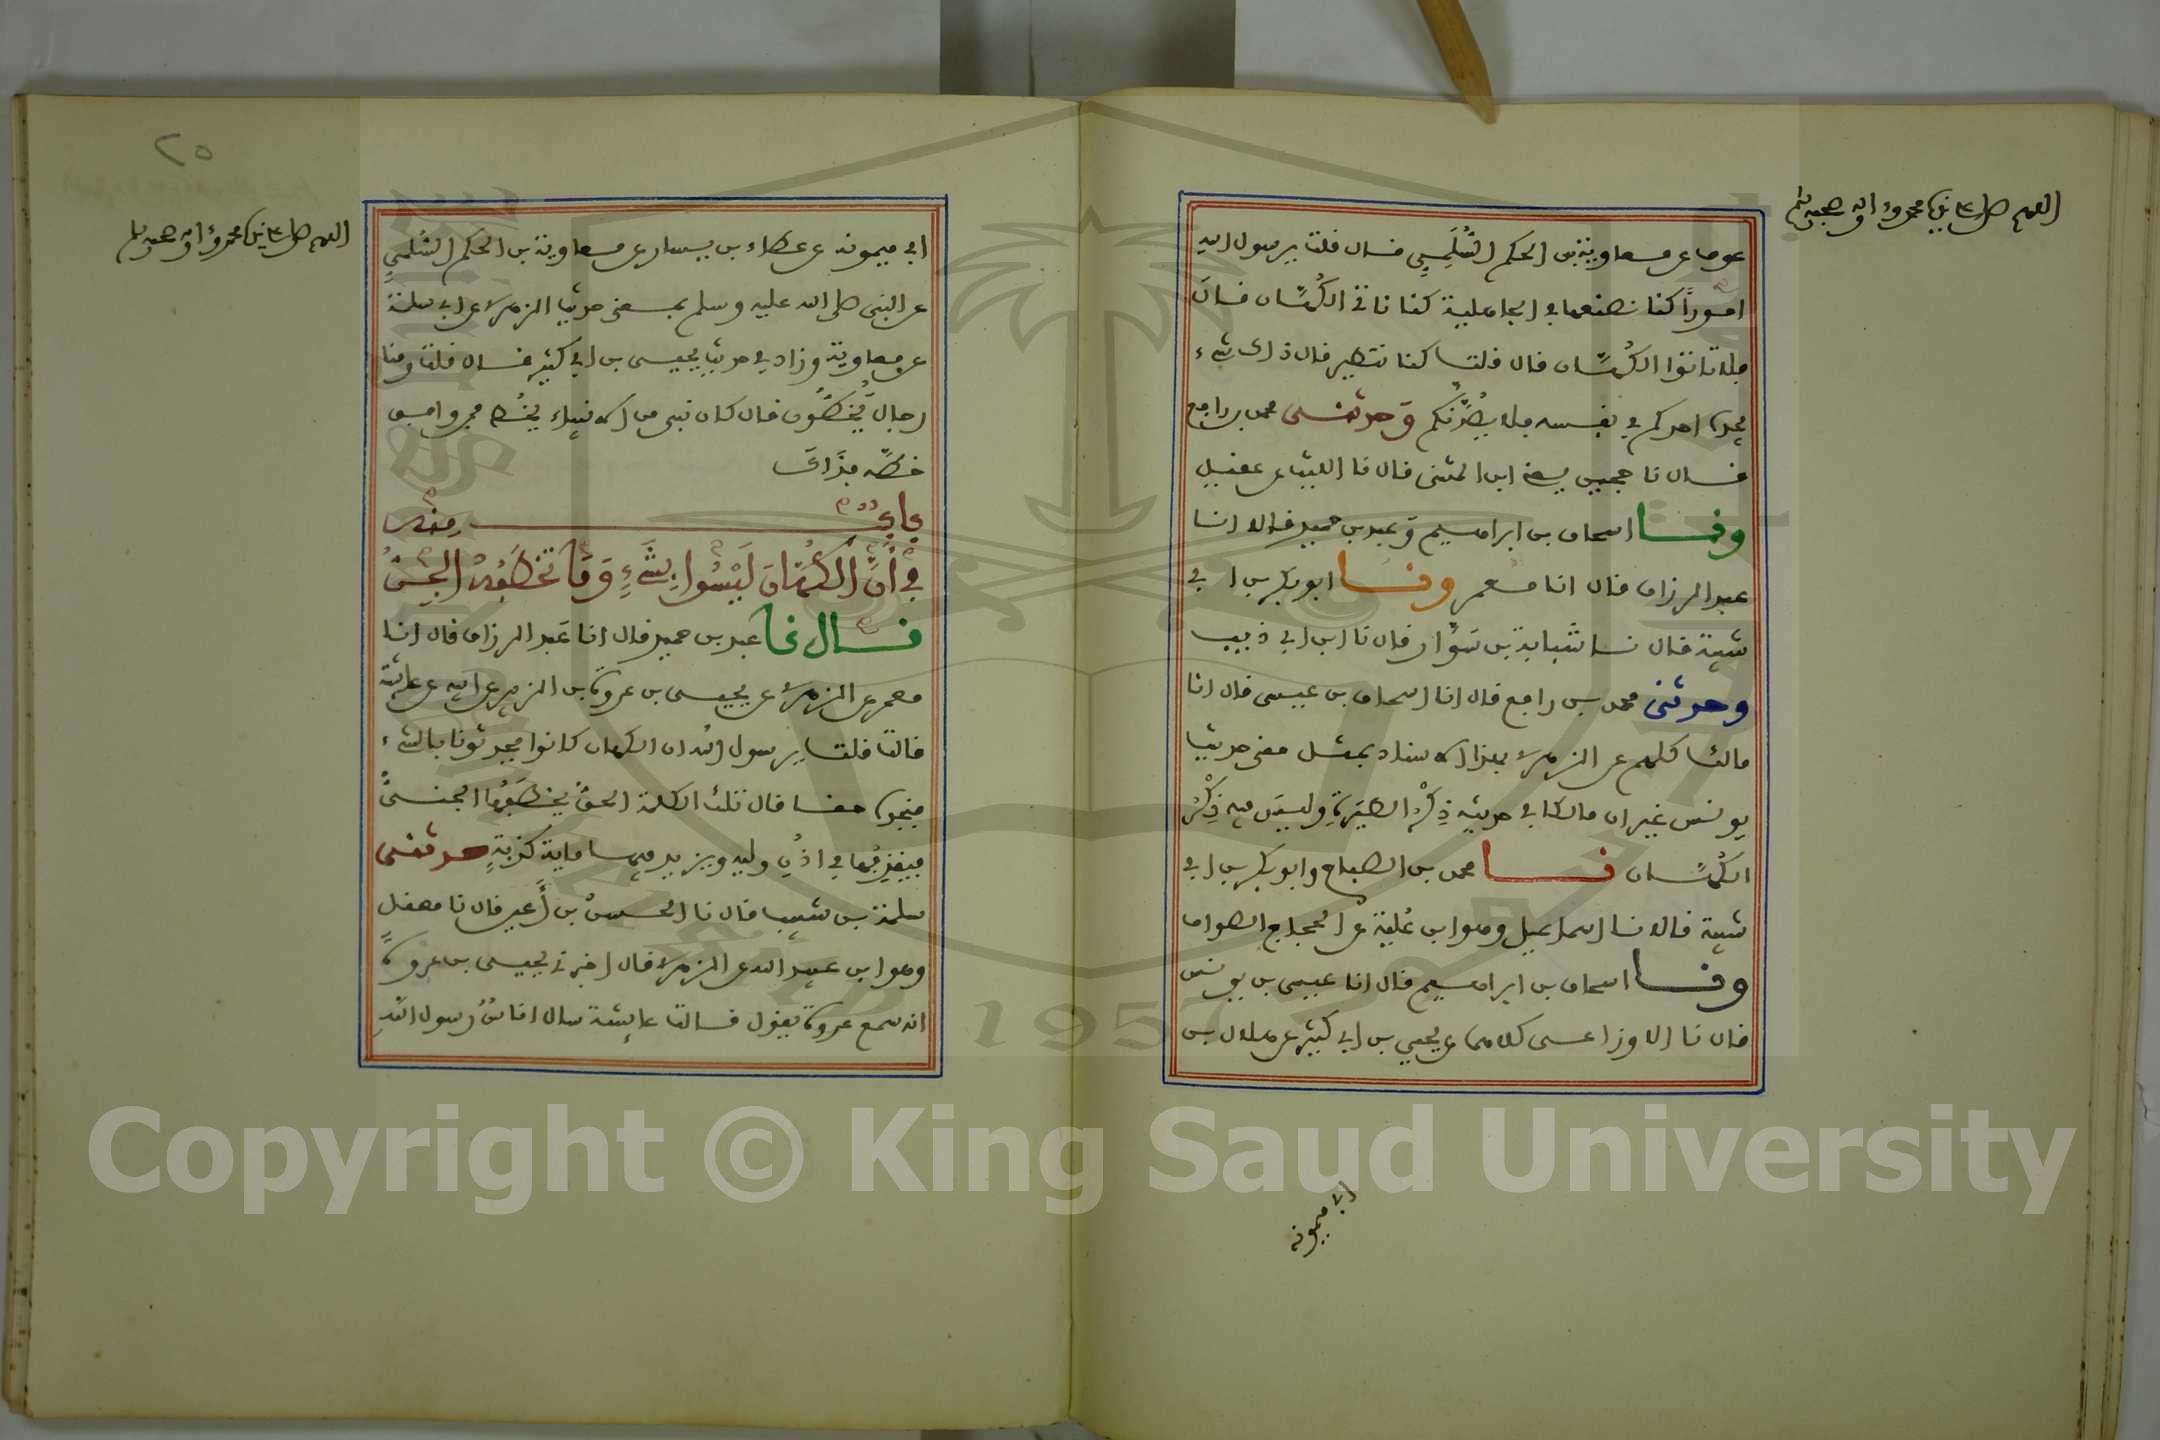 اللهم صل على نبينا محمد وءاله وصحبه وسلم
عوف عن معاوية بن الحكم السُّلَمِيِ فال فلت يرسول الله
امورًا كنا نصنعها في الجاهلية كنا ناتي الكُهَّان فال
فلا تاتوا الكُهَّان فال فلت كنا نتطير فال ذاك شيء
يجده احدكم في نفسه فلا يَصُدَّنَّكم وَحدثني محمد بن رافع
فال نا حجين يعني ابن المثنى فال نا الليث عن عفيل
ونا اسحاق بن ابراهيم وَعبد بن حميد فالا انا
عبد الرزاق فال انا معمر ونا ابو بكر بن ابي
شيبة فال نا شَبابة بن سَوَّار فال نا ابن ابي ذيب
وحدثني محمد بن رافع فال انا اسحاق بن عيسى فال انا
مالك كلهم عن الزهري بهذا الاسناد بمثل معنى حديث
يونس غير ان مالكا في حديثه ذِكْرُ الطِّيَرَةِ وليس فيه ذِكْرُ
الكُهَّان نا محمد بن الصباح وابو بكر بن ابي
شيبة فالا نا اسماعيل وهو ابن عُلية عن الحجاج الصواف
ونا اسحاق بن ابراهيم فال انا عيسى بن يونس
فال نا الاوزاعي كلاهما عن يحيى بن ابي كثير عن هلال بن
ابي ميمونه
٢٥
اللهم صل على نبينا محمد وءاله وصحبه وسلم
ابي ميمونه عن عطاء بن يسار عن معاوية بن الحكم السُّلَميِ
عن النبي صلى الله عليه وسلم بمعنى حديث الزهري عن ابي سلمة
عن معاوية وزاد في حديث يحيى بن ابي كثير فال فلت ومنا
رجال يَخُطُّون فال كان نبي من الانبياء يخُط فمن وافق
خطّه فذَاكَ
باب منه
في أنَّ الْكُهَّانَ لَيْسُوا بِشَيْءٍ وَمَا تَخْطَفُهُ الْجِنُّ
فال نا عبد بن حميد فال انا عَبد الرزاق فال انا
معمر عن الزهري عن يحيى بن عروة بن الزبير عن ابيه عن عايشة
فالت فلت يرسول الله ان الكهان كانوا يحدثونا بالشيء
فنجده حفا فال تلك الكلمة الحقُّ يخطَفُها الجنيُّ
فيفذِفُها في اذُنِ وليه ويزيد فيها ماية كَذبةٍ حدثني
سلمة بن شبيب فال نا الحسنُ بن أَعين فال نا معفل
وهو ابن عبيد الله عن الزهري فال اخبرني يحيى بن عروةَ
انه سمع عروة يفول فالت عايشة سال اناسٌ رسول اللهِ
Copyright © King Saud University
1957